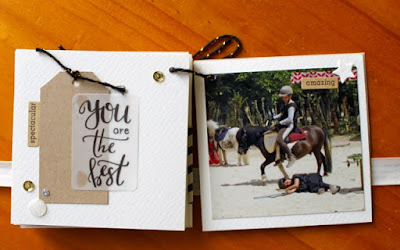 spectacular
you
are
the
best
amazing